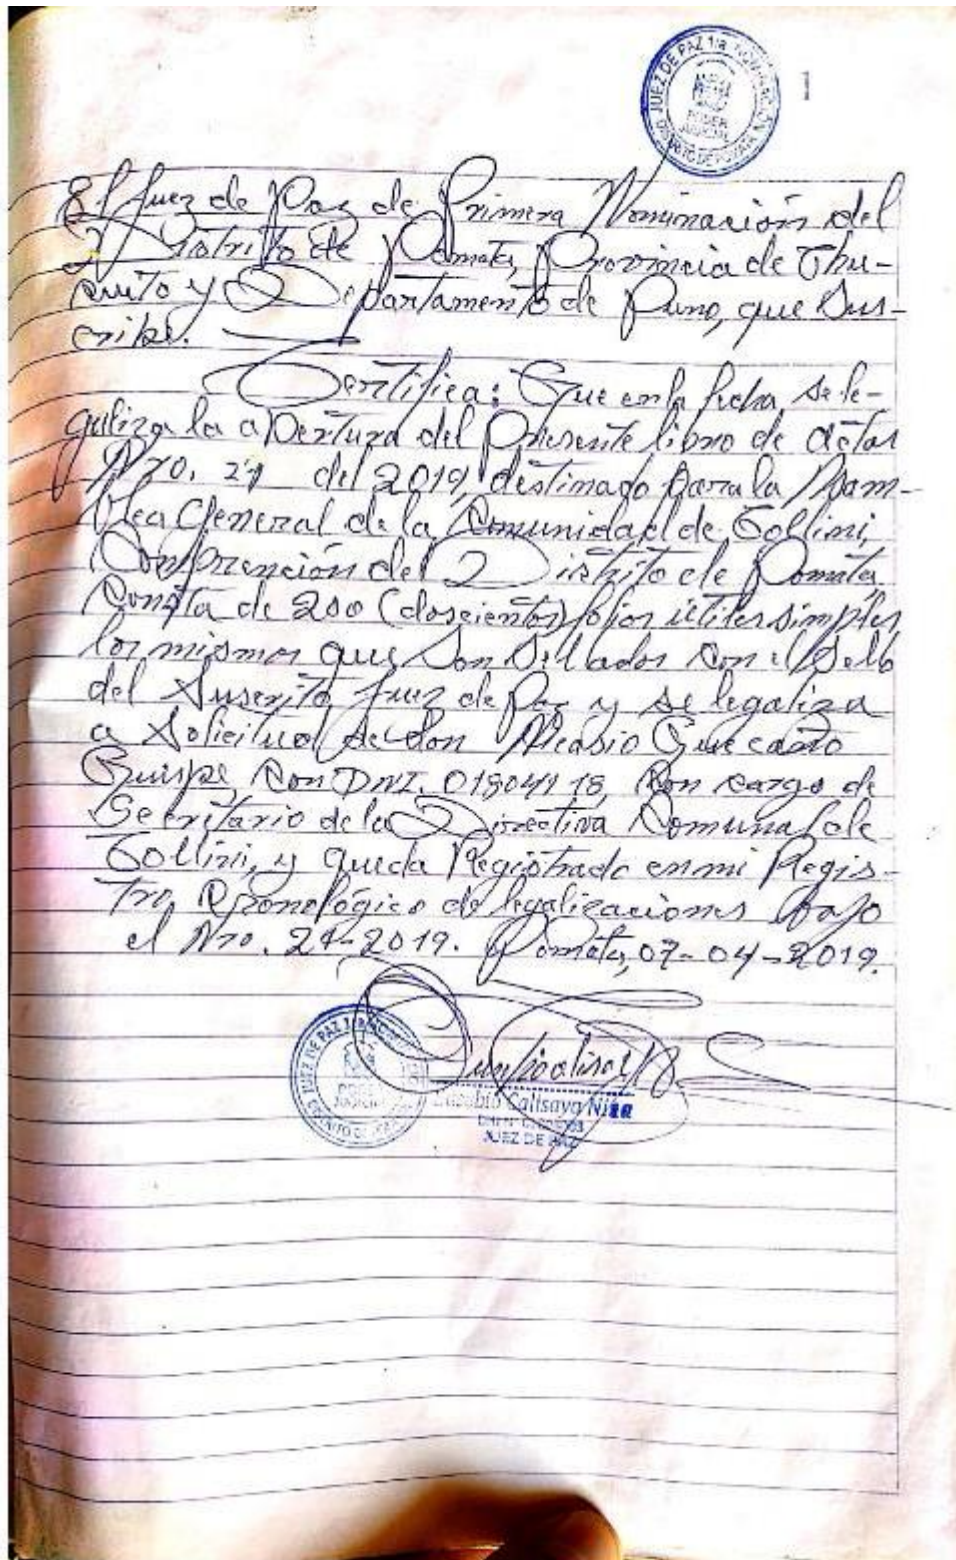 JUEZ DE PAZ 1ra. NOMINACIÓN
PODER
JUDICIAL
DISTRITO DE POMATA
1
El Juez de Paz de Primera Nominación del
Distrito de Pomata, Provincia de Chu-
cuito y Departamento de Puno, que Sus-
cribe.
Certifica: Que en la fecha, se le-
galiza la apertura del Presente libro de actas
Nro. 24 del 2019, destinado para la Asam-
blea General de la Comunidad de Collini,
Comprención del Distrito de Pomata,
Consta de 200 (doscientos) fojas útiles simples
los mismos que Son Sellados con el Sello
del Suscrito Juez de Paz y se legaliza
a Solicitud de don Nicasio Quecaño
Quispe, con DNI. 01804118, con cargo de
Secretario de la Directiva Comunal de
Collini, y queda Registrado en mi Regis-
tro Cronológico de legalizaciones bajo
el Nro. 24-2019. Pomata, 07-04-2019.
JUEZ DE PAZ
PODER
JUDICIAL
Eusebio Calisaya Nina
JUEZ DE PAZ